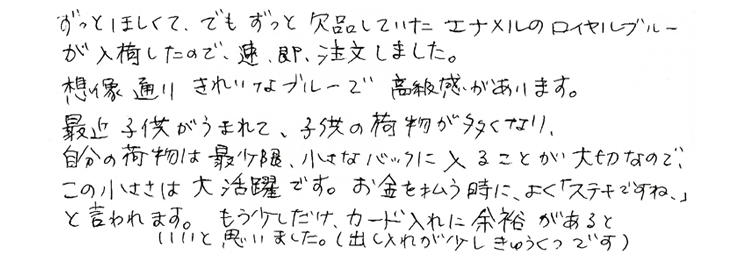 ずっとほしくて、でもずっと欠品していたエナメルのロイヤルブルー
が入荷したので、速、即、注文しました。
想像通りきれいなブルーで高級感があります。
最近子供がうまれて、子供の荷物が多くなり、
自分の荷物は最少限、小さなバックに入ることが大切なので、
この小ささは大活躍です。お金を払う時に、よく「ステキですね、」
と言われます。もう少しだけ、カード入れに余裕があると
いいと思いました。(出し入れが少しきゅうくつです)